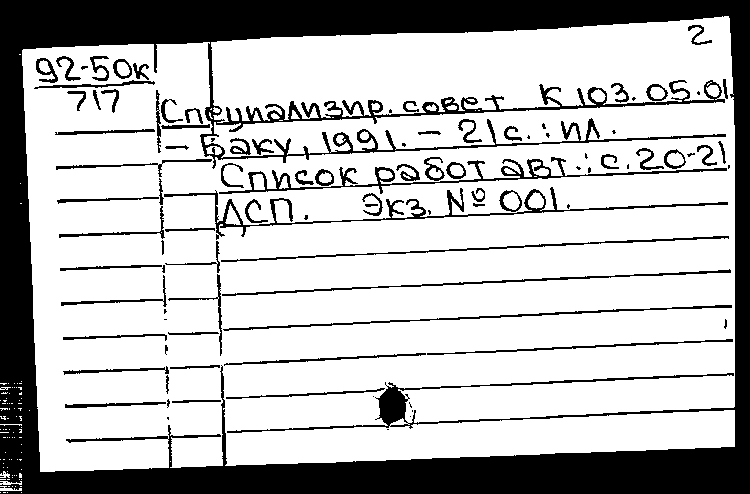 2
92-50к
717
Специализир. совет К 103.05.01.
– Баку, 1991. – 21 с. : ил.
Список работ авт.: с. 20-21
ДСП. Экз. № 001.